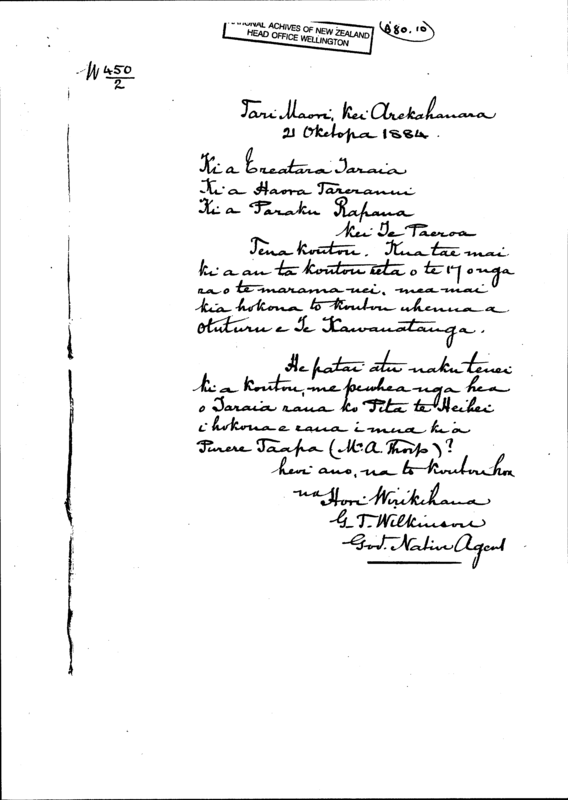 NATIONAL ACHIVES OF NEW ZEALAND
HEAD OFFICE WELLINGTON
B80.10
N 450/2
Tari Maori, Kei Arekahanara
21 Oketopa 1884.
Ki a Ereatara Taraia
Ki a Haora Tareranui
Ki a Paraku Rapana
Kei Te Paeroa
Tena Koutou. Kua tae mai
ki a au ta koutou reta o te 17 o nga
ra o te marama nei, mea mai
kia hokona to koutou whenua a
Otuturu e Te Kawanatanga.
He patai atu naku tenei
ki a Koutou, me pewhea nga hea
o Taraia raua ko Pita te Heihei
i hokona e raua i mua ki a
Purere Taapa (Mr. A. Thorp)?
heoi ano, na to Koutou hoa
na Hori Wirikihana
G. T. Wilkinson
Govt. Native Agent